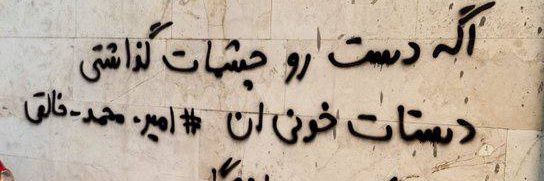 اگه دست رو چشمات گذاشتی
دستات خونی ان #امیر-محمد-خالقی